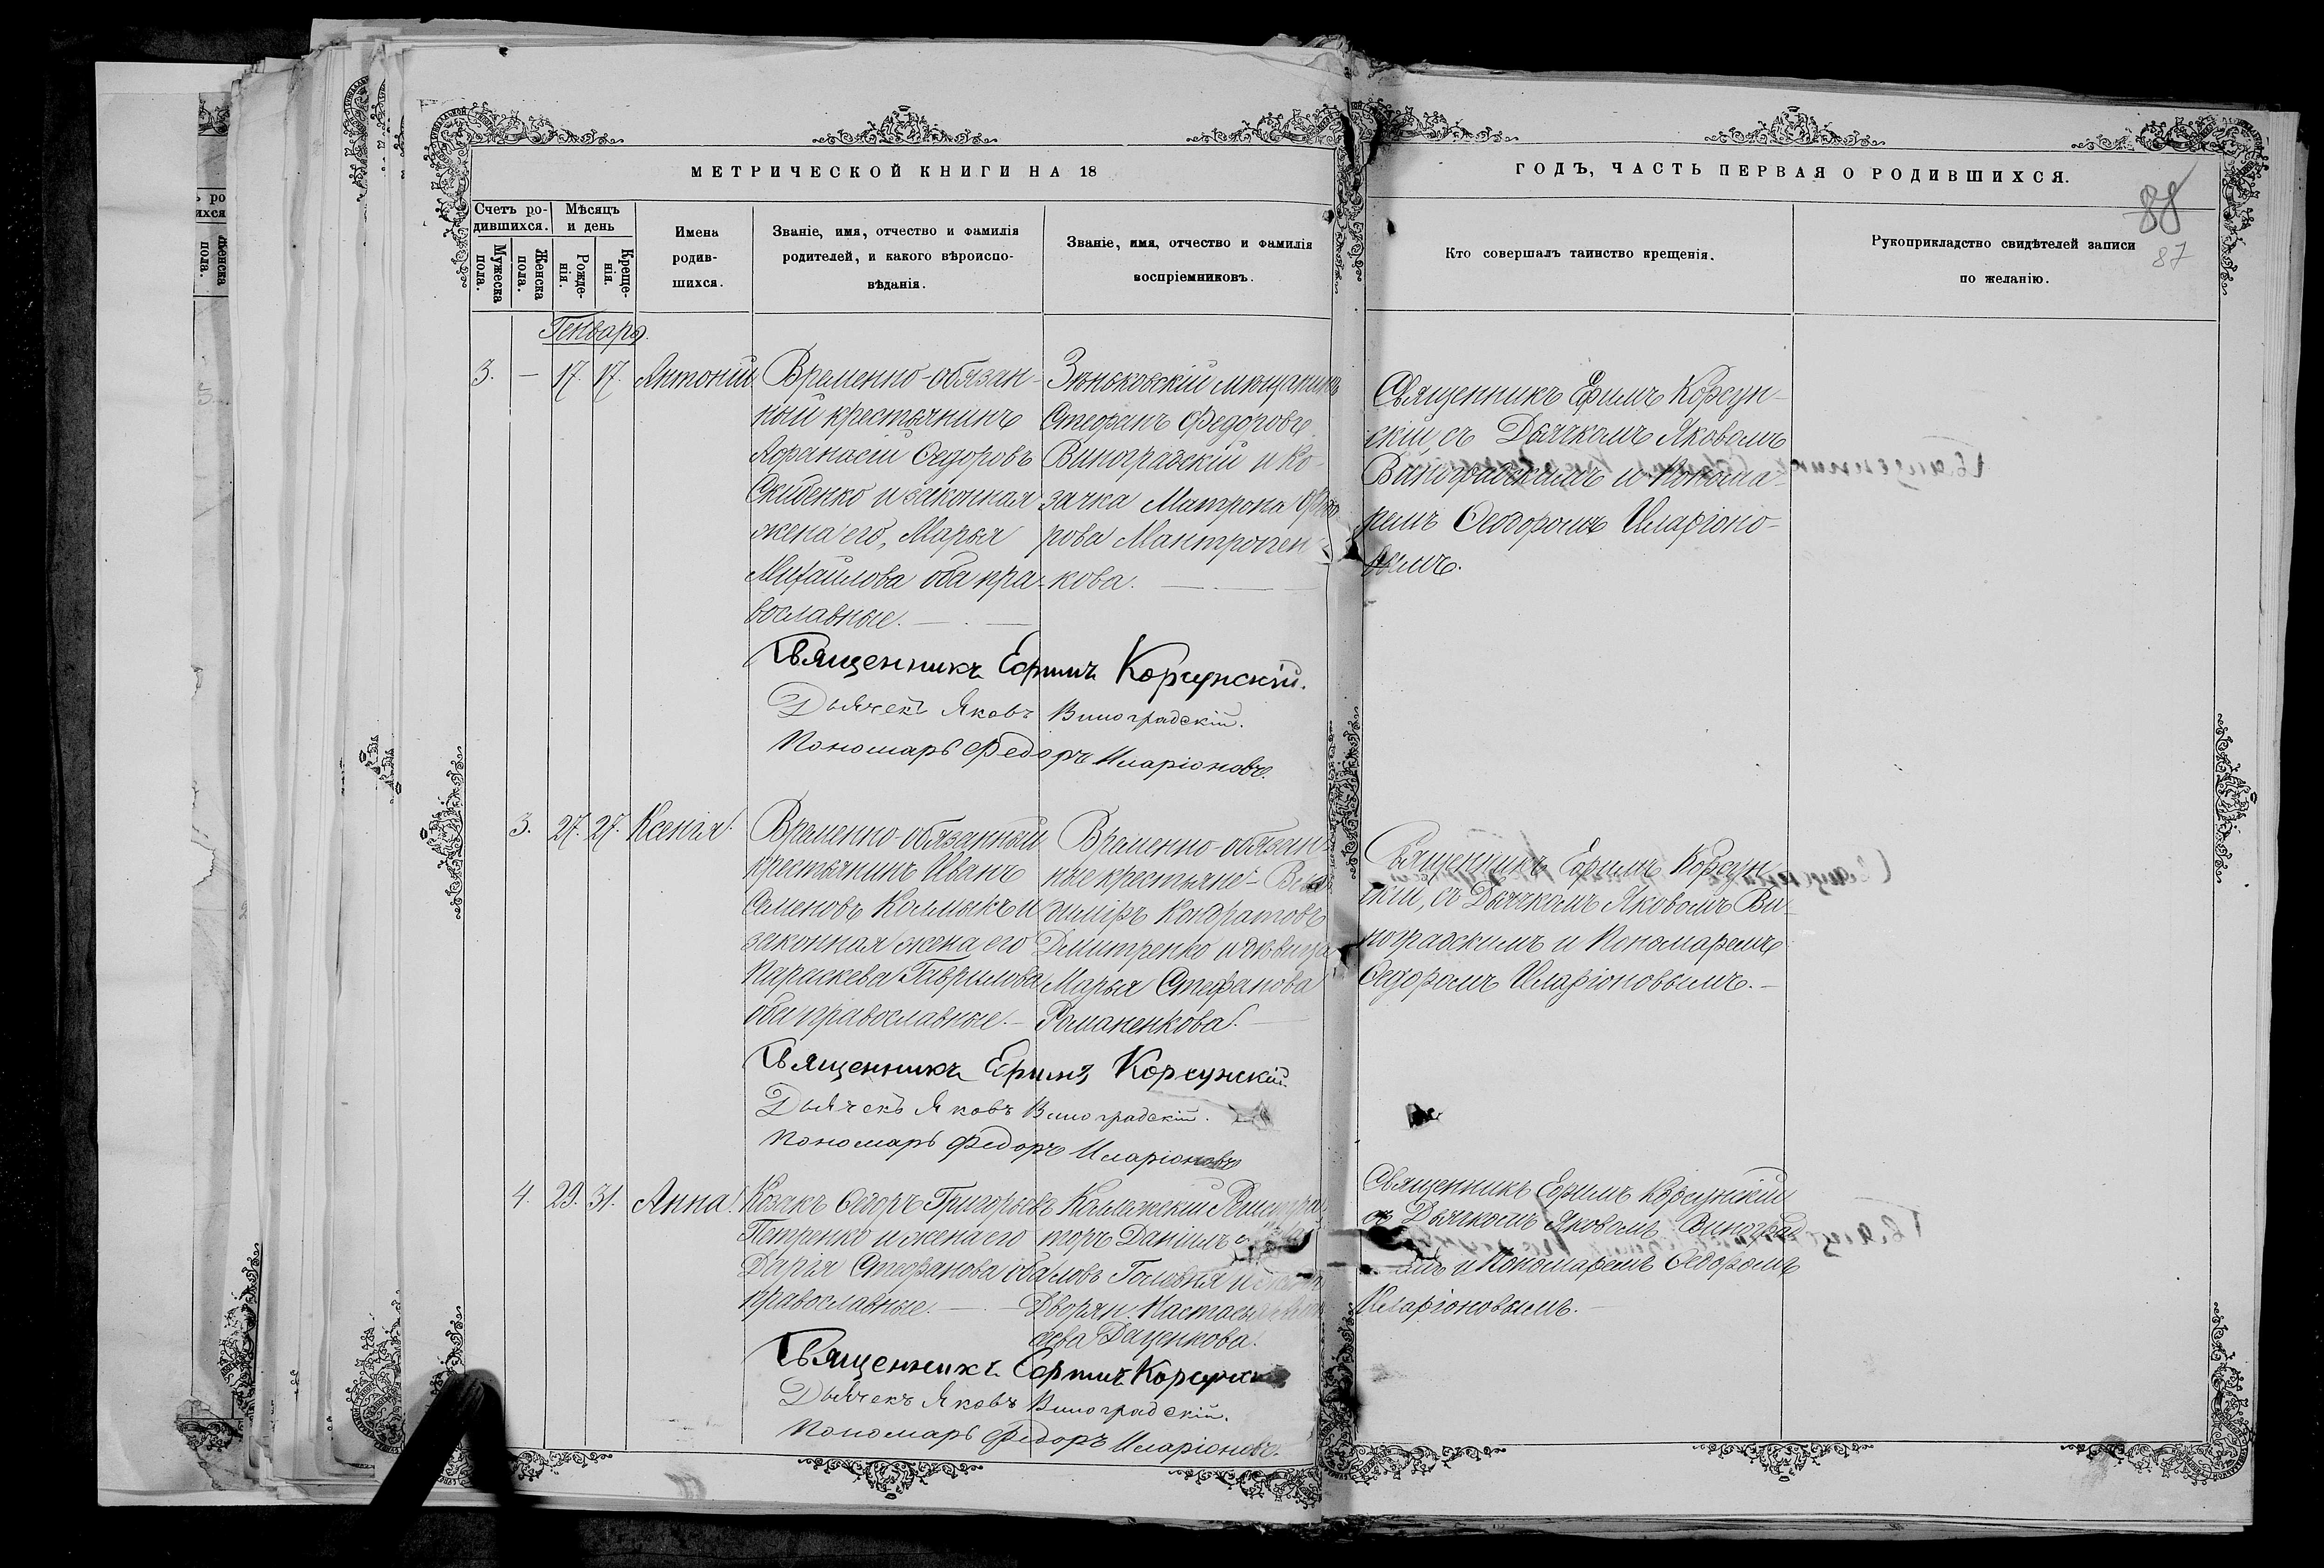 МЕТРИЧЕСКОЙ КНИГИ НА 18
ГОДЪ, ЧАСТЬ ПЕРВАЯ О РОДИВШИХСЯ.
88
87
Счетъ ро-
дившихся.
Мужеска
пола.
Женска
пола.
Мѣсяцъ
и день
Рожде-
нія.
Креще-
нія.
Имена
родив-
шихся.
Званіе, имя, отчество и фамилія
родителей, и какого вѣроиспо-
вѣданія.
Званіе, имя, отчество и фамилія
воспріемниковъ.
Кто совершалъ таинство крещенія.
Рукоприкладство свидѣтелей записи
по желанію.
Генварь.
3. — 17. 17. Антоній.
Временно-обязан-
ный крестьянинъ
Афанасій Ѳедоровъ
Скиденко и законная
жена его, Марья
Михайлова оба пра-
вославные.
Зѣньковскій мѣщанинъ
Стефанъ Федоровъ
Виноградскій и Ко-
зачка Матрона
рова
кова.
Священникъ Ефимъ Корсун-
скій, съ Дьячкомъ Яковомъ
Виноградскимъ и Понома-
ремъ Ѳеодоромъ Иларіоно-
вымъ.
Священникъ Ефимъ Корсунскій.
Дьячекъ Яковъ Виноградскій.
Пономарь Федоръ Иларіоновъ.
3. 27. 27. Ксенія.
Временно-обязанный
крестьянинъ Иванъ
Семеновъ Калмыкъ и
законная жена его
Параскева Гаврилова
оба православные.
Временно-обязан-
ные крестьяне -
диміръ Кондратовъ
Дмитренко и дѣвица
Марья Стефанова
Романенкова.
Священникъ Ефимъ Корсун-
скій, съ Дьячкомъ Яковомъ Ви-
ноградскимъ и Пономаремъ
Ѳедоромъ Иларіоновымъ.
Священникъ Ефимъ Корсунскій.
Дьячекъ Яковъ Виноградскій.
Пономарь Федоръ Иларіоновъ
4. 29. 31. Анна.
Козакъ Ѳедоръ Григорьевъ
Петренко и жена его
Дарья Стефанова оба
православные.
торъ Даніилъ
ловъ Головня и
Дворян. Настасья
Даценкова.
Священникъ Ефимъ Корсунскій
съ Дьячкомъ Яковомъ Виноград
имъ и Пономаремъ Ѳедоромъ
Иларіоновымъ.
Священникъ Ефимъ Корсунскій
Дьячекъ Яковъ Виноградскій.
Пономарь Федоръ Иларіоновъ.